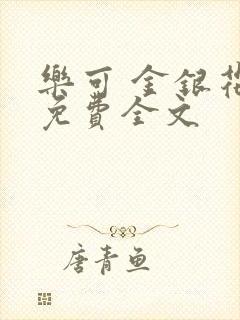 樂可 金銀花
免費全文
唐青魚